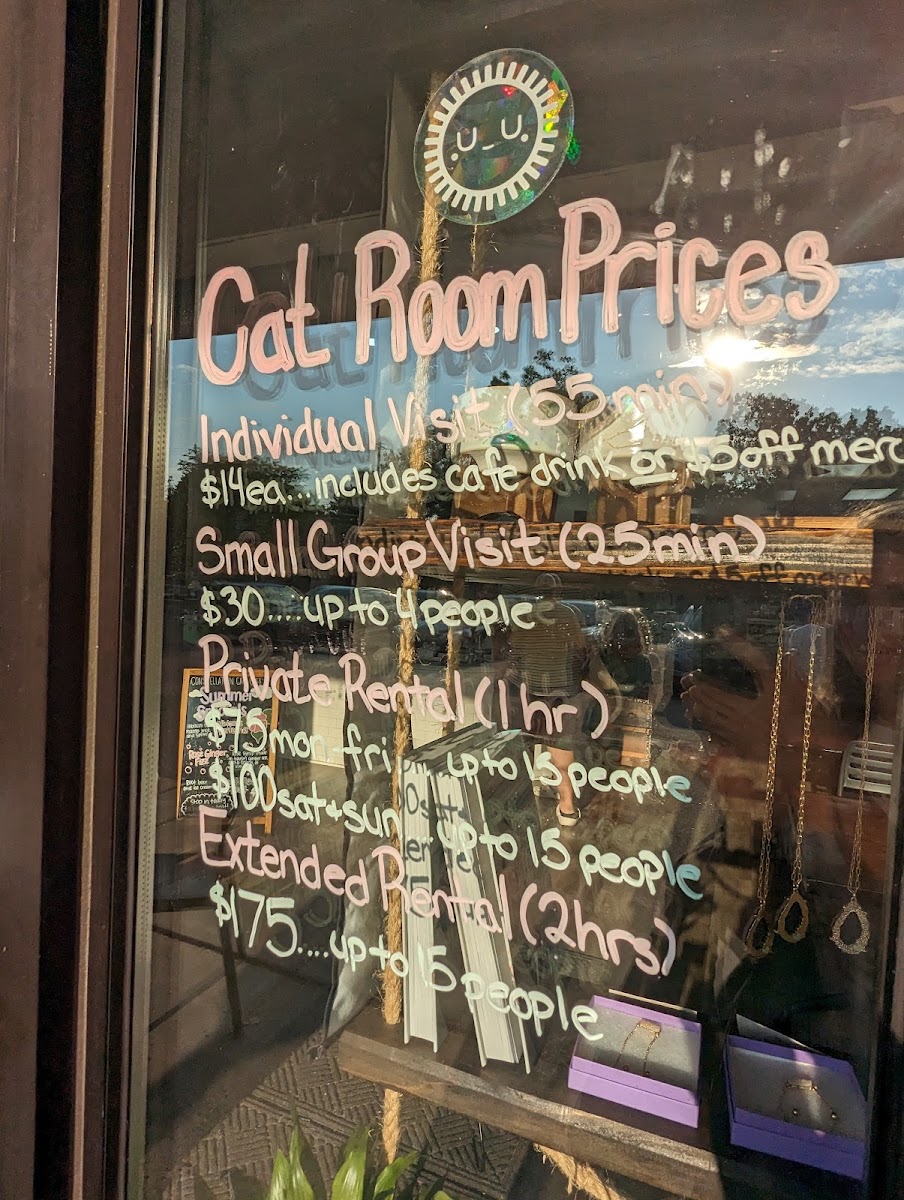 Cat Room Prices
Individual Visit (55 min)
$14ea...includes cafe drink or $5 off merc
Small Group Visit (25min)
$30....up to 4 people
Private Rental (1 hr)
$75 mon-fri up to 15 people
$100 sat+sun up to 15 people
Extended Rental (2hrs)
$175....up to 15 people
Summer